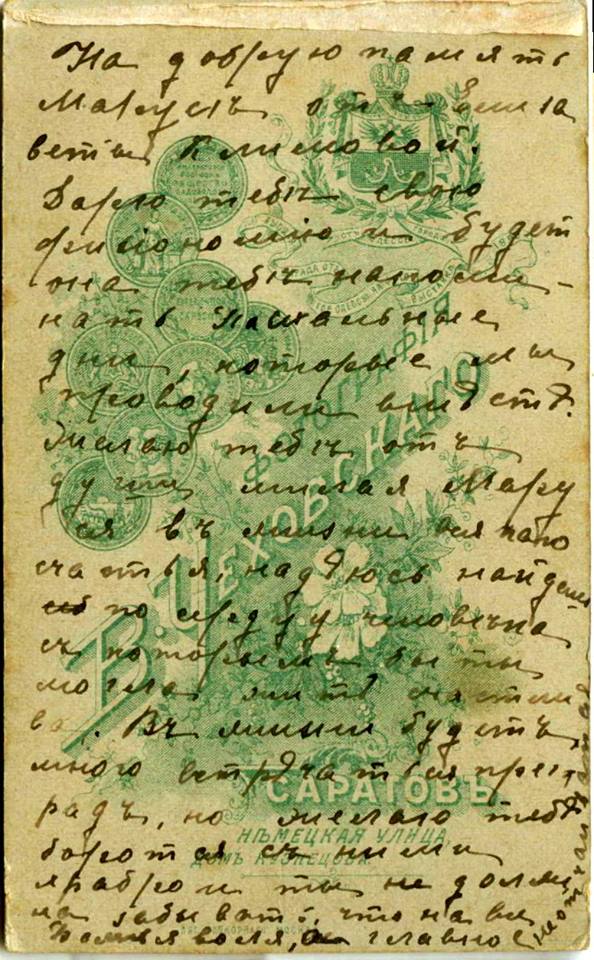 На добрую память
Марусѣ отъ Елиза
веты Климовой.
Дарю тебѣ свою
физіономію и будет
она тебѣ напоми-
нать пасхальные
дни, которые мы
проводили вмѣстѣ.
Желаю тебѣ отъ
души милая Мару
ся въ жизни всякаго
счастья, надѣюсь найдешь
по сердцу человѣка
съ которымъ бы ты
могла жить счастли
во. Въ жизни будетъ
много встрѣчаться прег
радъ, но желаю тебѣ
бороться съ ними
храбро и ты не долж
на забывать, что на все
воля, а главное
ФОТОГРАФІЯ
В. ЧЕХОВСКАГО
САРАТОВЪ
НѢМЕЦКАЯ УЛИЦА
ДОМЪ КУЗНЕЦОВА.